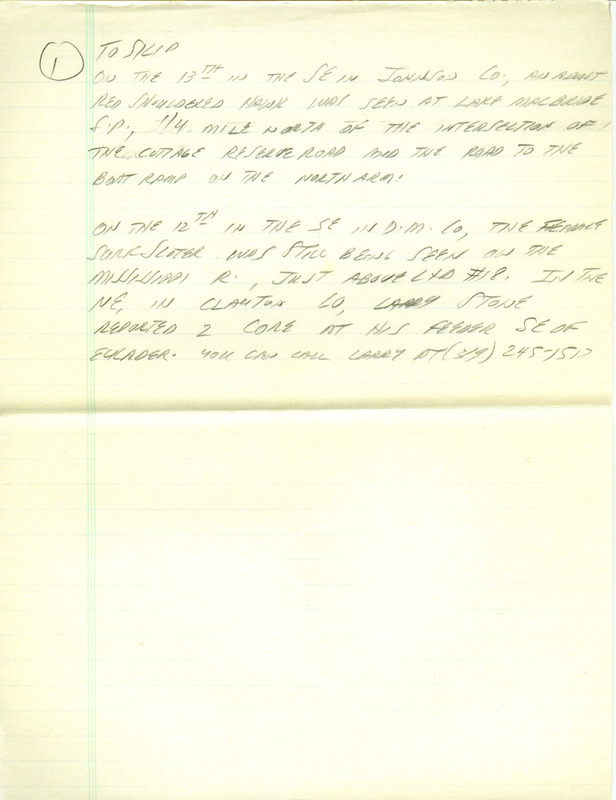 1
TO SKIP
ON THE 13TH IN THE SE IN JOHNSON CO, AN ADULT
RED SHOULDERED HAWK WAS SEEN AT LAKE MACBRIDE
S.P., 1/4 MILE NORTH OF THE INTERSECTION OF
THE COTTAGE RESERVE ROAD AND THE ROAD TO THE
BOAT RAMP ON THE NORTH ARM.
ON THE 12TH IN THE SE IN D.M. CO, THE FEMALE
SURF SCOTER WAS STILL BEING SEEN ON THE
MISSISSIPPI R., JUST ABOVE L+D #18. IN THE
NE, IN CLAYTON CO, LARRY STONE
REPORTED 2 CORE AT HIS FEEDER SE OF
ELKADER. YOU CAN CALL LARRY AT (319) 245-1517